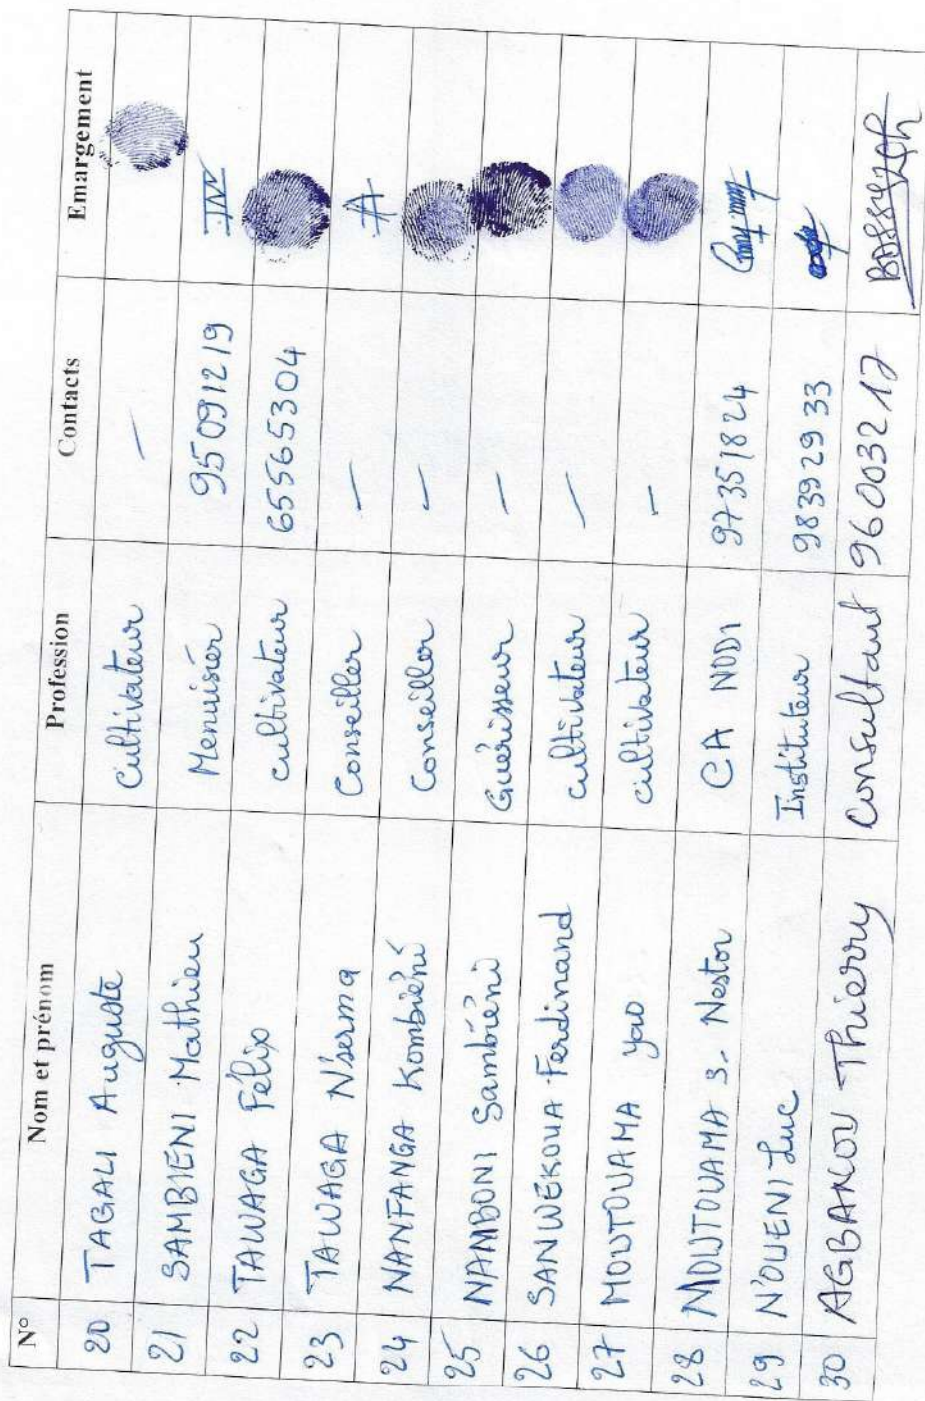 N° Nom et prénom Profession Contacts Emargement
20 TAGALI Auguste Cultivateur —
21 SAMBIENI Mathieu Menuisier 95091219
22 TAWAGA Félix cultivateur 65565304
23 TAWAGA N'serma Conseiller —
24 NANFANGA Kombiéni Conseiller —
25 NAMBONI Sambiéni Guérisseur —
26 SANWEKOUA Ferdinand cultivateur —
27 MOUTOUAMA yao cultivateur —
28 MOUTOUAMA S. Nestor CA NODI 97351824
29 N'OUENI Luc Instituteur 98392933
30 AGBAKOU Thierry Consultant 96003217